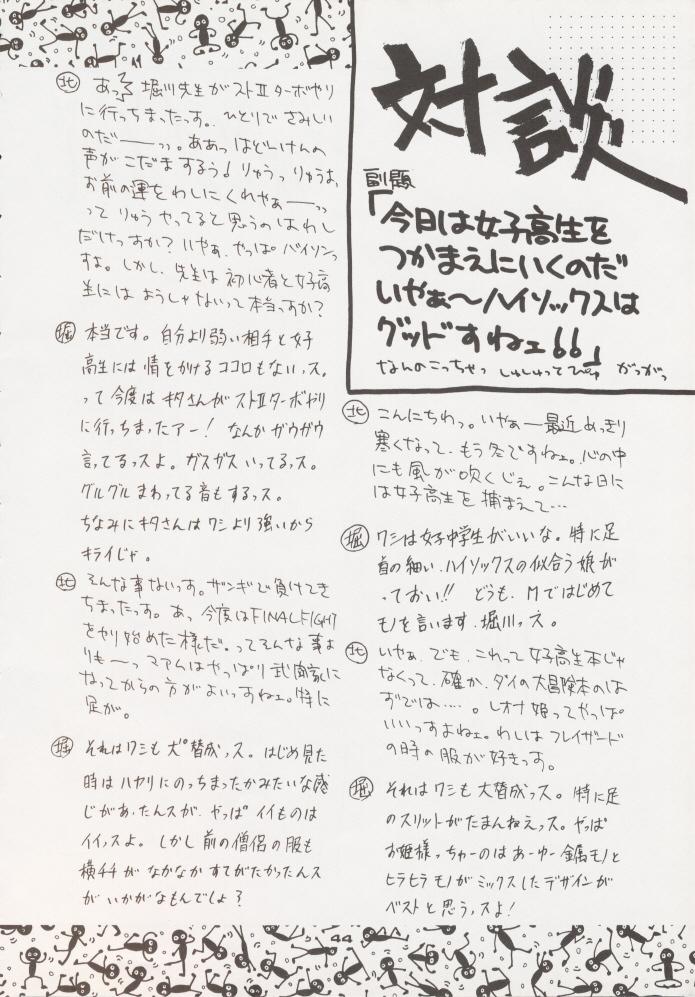 対談
副題
「今日は女子高生を
つかまえにいくのだ
いやぁ〜ハイソックスは
グッドすねェ66」
なんのこっちゃっ しゅしゅってぴゅ がっがっ
北 こんにちわっ。いやぁ―最近めっきり
寒くなって、もう冬ですねェ。心の中
にも風が吹くじぇ。こんな日に
は女子高生を捕まえて…
堀 ワシは女子中学生がいいな。特に足
首の細い、ハイソックスの似合う娘が
っておい!! どうも、Mではじめて
モノを言います、堀川っス。
北 いやぁ、でも、これって女子高生本じゃ
なくって、確か、ダイの大冒険本のは
ずでは…。レオナ姫ってやっぱ
いいっすよねェ。わしはフレイザード
の時の服が好きっす。
堀 それはワシも大賛成っス。特に足
のスリットがたまんねえっス。やっぱ
お姫様っちゃーのはあーゆー金属モノと
ヒラヒラモノがミックスしたデザインが
ベストと思うっスよ!
北 あっ 堀川先生がストⅡターボやり
に行っちまったっす。ひとりでさみしい
のだ―――ッッ。ああっはどいけんの
声がこだまするぅ! りゅうっりゅうよ、
お前の運をわしにくれやぁ――ッッ
って りゅうやってると思うのはわし
だけっすか? いやぁ、やっぱバイソンっ
すよ。しかし、先生は初心者と女子高
生にはようしゃないって本当っすか?
堀 本当です。自分より弱い相手と女子
高生には情をかけるココロもないっス。
って今度はキタさんがストⅡターボやり
に行っちまったアー! なんかガウガウ
言ってるっスよ。ガスガスいってるっス。
グルグルまわってる音もするっス。
ちなみにキタさんはワシより強いから
キライじゃ。
北 そんな事ないっす。ザンギで負けてき
ちまったっす。あっ 今度はFINALFIGHT
をやり始めた様だ。ってそんな事よ
りも―っ マァムはやっぱり武闘家に
なってからの方がよいっすねェ。特に
足が。
堀 それはワシも大賛成っス。はじめ見た
時はハヤリにのっちまったかみたいな感
じがあったんスが、やっぱイイものは
イイっスよ。しかし前の僧侶の服も
横チチがなかなかすてがたかったんス
がいかがなもんでしょ?
44